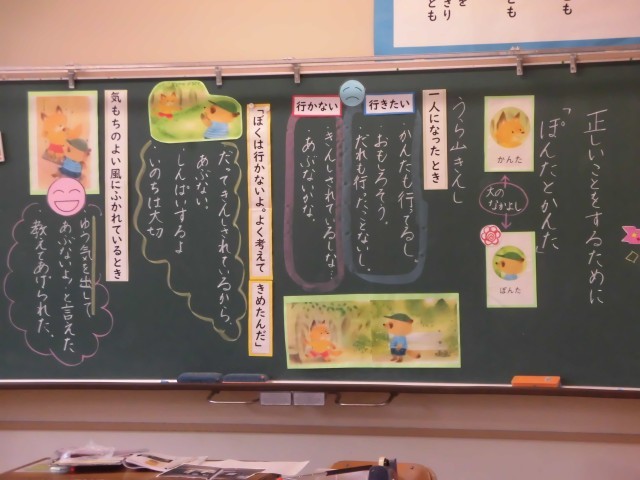 正しいことをするために
「ぽんたとかんた」
かんた
大の
なかよし
ぽんた
うら山きんし
一人になったとき
行きたい
かんたも行ってるし
・おもしろそう。
・だれも行ったことないし。
行かない
・きんしされているしな…
・あぶないかな。
「ぼくは行かないよ。よく考えて
きめたんだ」
・だってきんしされているから。
あぶない。
・しんぱいするよ
・いのちは大切
気もちのよい風にふかれているとき
・ゆう気を出して
あぶないよ!と言えた
・教えてあげられた。